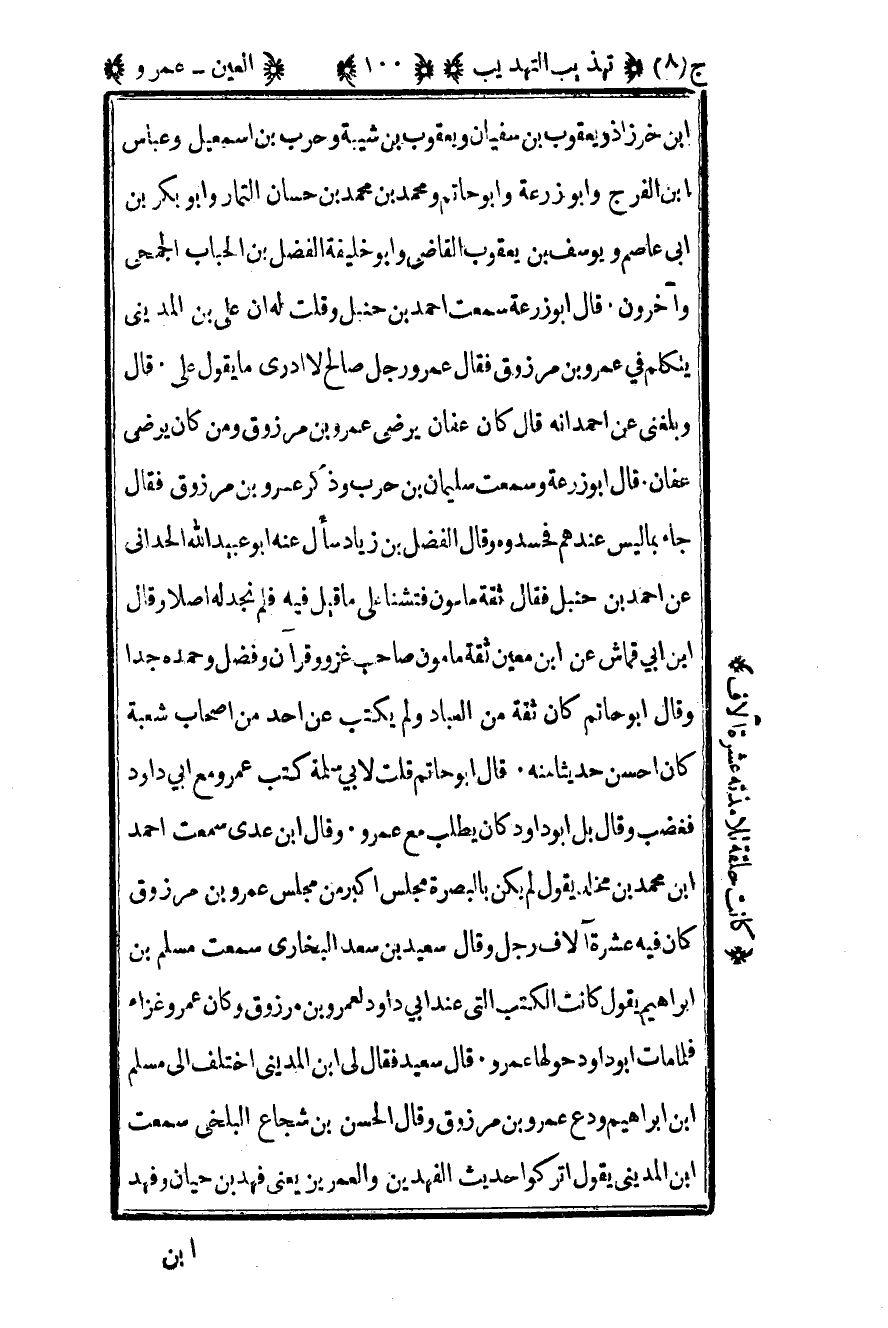 ج (٨) ﴿ تهذيب التهذيب ﴾ ﴿ ١٠٠ ﴾ ﴿ العين - عمرو ﴾
ابن خرزاذ ويعقوب بن سفيان ويعقوب بن شيبة وحرب بن اسمعيل وعباس
ابن الفرج وابو زرعة وابو حاتم ومحمد بن محمد بن حسان التمار وابو بكر بن
ابى عاصم ويوسف بن يعقوب القاضى وابو خليفة الفضل بن الحباب الجمحى
وآخرون ٠ قال ابوزرعة سمعت احمد بن حنبل وقلت له ان على بن المدينى
يتكلم في عمرو بن مرزوق فقال عمرو رجل صالح لا ادرى مايقول على ٠ قال
وبلغنى عن احمد انه قال كان عفان يرضى عمرو بن مرزوق ومن كان يرضى
عفان ٠ قال ابوزرعة وسمعت سليمان بن حرب وذكر عمرو بن مرزوق فقال
جاء بماليس عندهم فحسدوه وقال الفضل بن زياد سأل عنه ابوعبيد الله الحدانى
عن احمد بن حنبل فقال ثقة مامون فتشنا على ماقيل فيه فلم نجد له اصلا وقال
ابن ابي قماش عن ابن معين ثقة مامون صاحب غزو وقرآن وفضل وحمده جدا
وقال ابوحاتم كان ثقة من العباد ولم يكتب عن احد من اصحاب شعبة
كان احسن حديثا منه ٠ قال ابوحاتم قلت لابي سلمة كتب عمرو مع ابي داود
فغضب وقال بل ابوداود كان يطلب مع عمرو ٠ وقال ابن عدى سمعت احمد
ابن محمد بن مخلد يقول لم يكن بالبصرة مجلس اكبر من مجلس عمرو بن مرزوق
كان فيه عشرة آلاف رجل وقال سعيد بن سعد البخارى سمعت مسلم بن
ابراهيم يقول كانت الكتب التى عند ابي داود لعمرو بن مرزوق وكان عمرو غزاء
فلما مات ابوداود حولها عمرو ٠ قال سعيد فقال لى ابن المدينى اختلف الى مسلم
ابن ابراهيم ودع عمرو بن مرزوق وقال الحسن بن شجاع البلخى سمعت
ابن المدينى يقول اتركوا حديث الفهدين والعمرين يعنى فهد بن حيان وفهد
﴿ كانت حلقة تلامذته عشرة آلاف ﴾
ابن